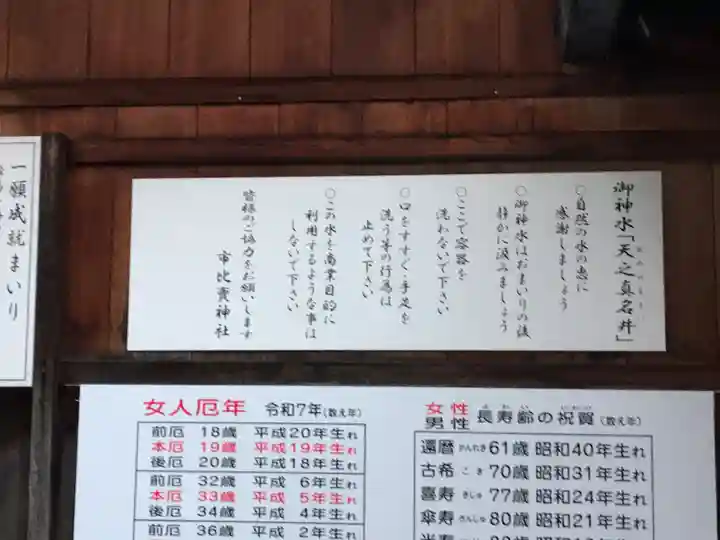 御神水「天之真名井」
○自然の水の恵に
感謝しましょう
○御神水はおまいりの後
静かに汲みましょう
○ここで容器を
洗わないで下さい
○口をすすぐ・手足を
洗う等の行為は
止めて下さい
○この水を商業目的に
利用するような事は
しないで下さい
皆様のご協力をお願いします
市比賣神社
一願成就まいり
女人厄年 令和7年(数え年)
前厄 18歳 平成20年生れ
本厄 19歳 平成19年生れ
後厄 20歳 平成18年生れ
前厄 32歳 平成 6年生れ
本厄 33歳 平成 5年生れ
後厄 34歳 平成 4年生れ
前厄 36歳 平成 2年生れ
女性
男性 長寿齢の祝賀 (数え年)
還暦 かんれき 61歳 昭和40年生れ
古希 こき 70歳 昭和31年生れ
喜寿 きじゅ 77歳 昭和24年生れ
傘寿 さんじゅ 80歳 昭和21年生れ